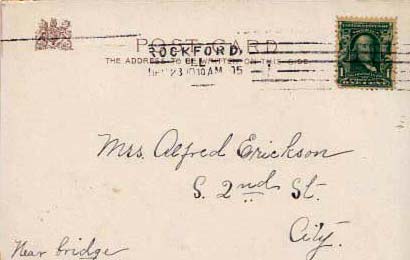 POST CARD
ROCKFORD,
ILL.
THE ADDRESS TO BE WRITTEN ON THIS SIDE
DEC 23 10 AM '05
1
1
Mrs. Alfred Erickson
S. 2nd St.
City.
Near bridge